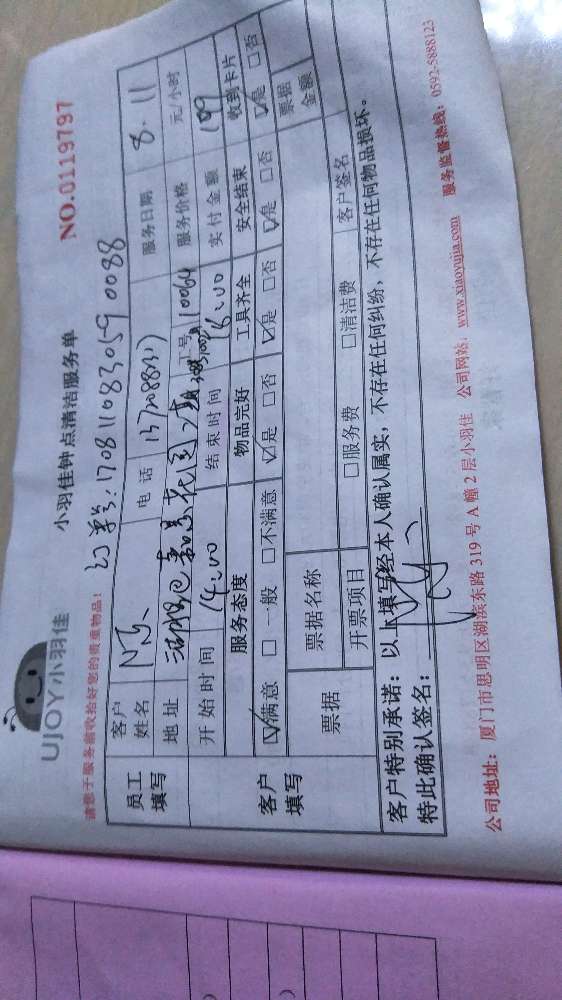 UJOY小羽佳
小羽佳钟点清洁服务单
NO.0119797
请您于服务前收拾好您的贵重物品!
:170811083059 0088
员工填写
客户姓名
电话
服务日期 8.11
地址
花园
号 10064
服务价格
元/小时
开始时间 14:00
结束时间 16:00
实付金额 199
客户填写
服务态度
物品完好
工具齐全
安全结束
收到卡片
☑满意 □一般 □不满意
☑是 □否
☑是 □否
☑是 □否
☑是 □否
票据
票据名称
票据金额
开票项目
□服务费
□清洁费
客户签名
客户特别承诺:以上填写经本人确认属实,不存在任何纠纷,不存在任何物品损坏。
特此确认签名:
公司地址:厦门市思明区湖滨东路319号A幢2层小羽佳 公司网站:www.xiaoyujia.com 服务监督热线:0592-5888123